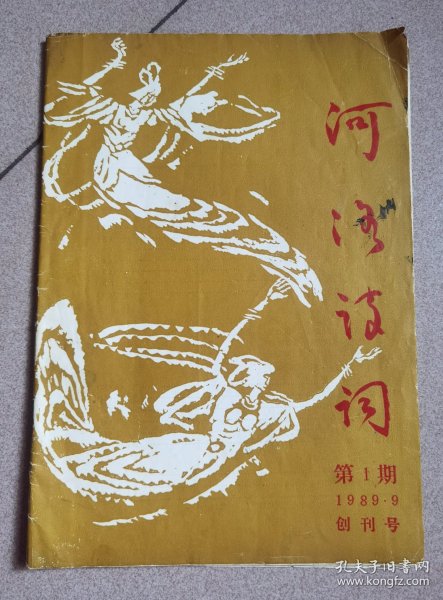 河洛诗词
第1期
1989·9
创刊号
孔夫子旧书网
www.kongfz.com